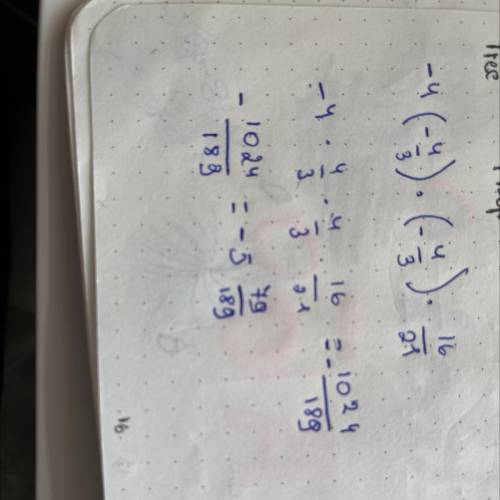 -4 (-4/3) · (-4/3) · 16/21
-4 · 4/3 · 4/3 16/21 = - 1024/189
- 1024/189 = -5 79/189
16